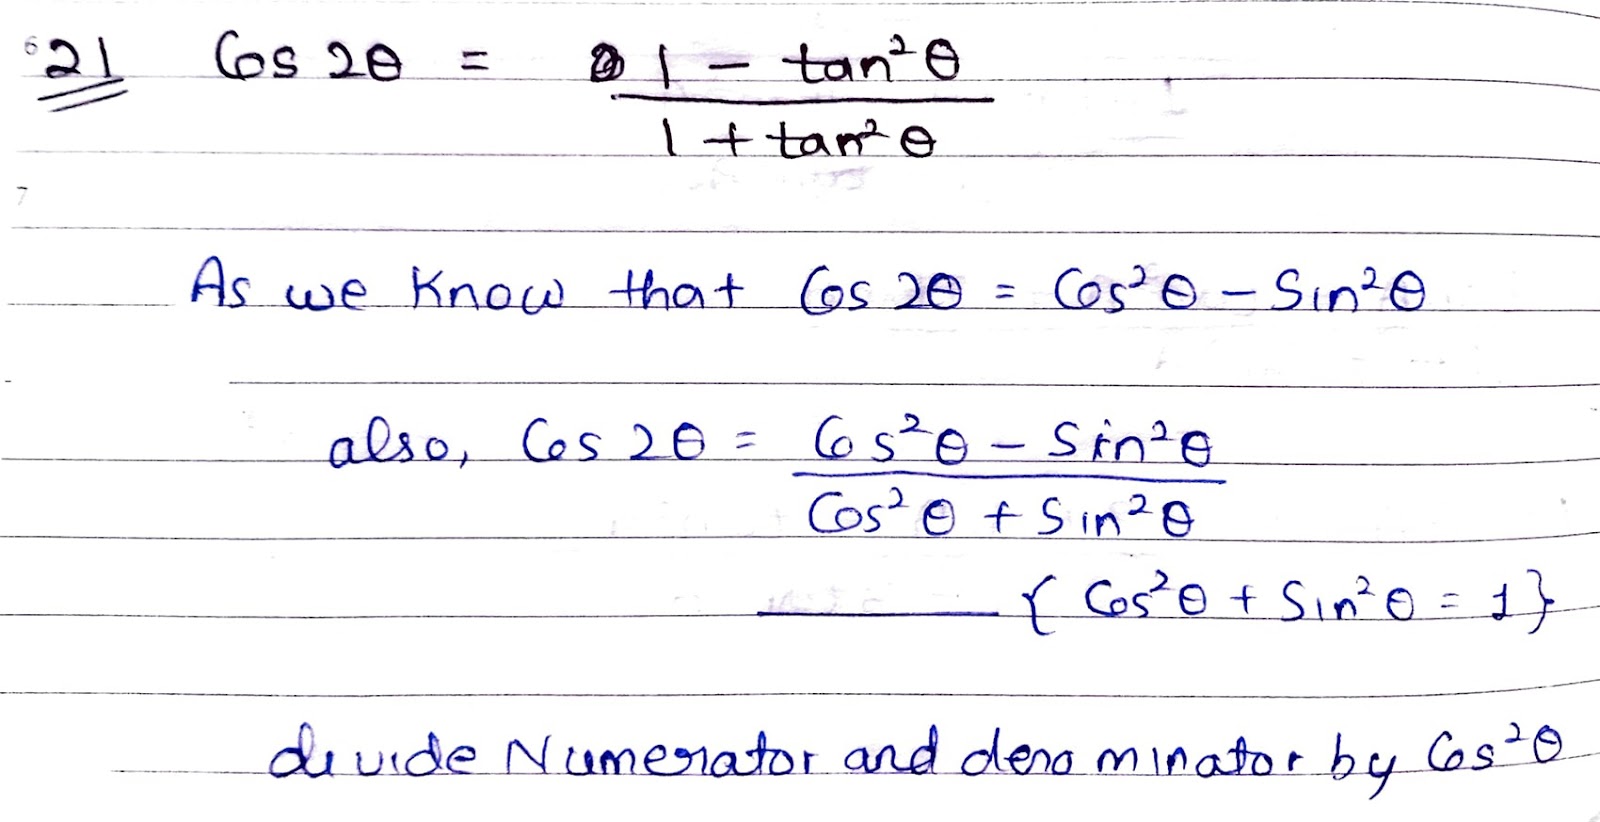 21 Cos 2θ = 1 - tan²θ
1 + tan²θ
As we know that Cos 2θ = Cos²θ - Sin²θ
also, Cos 2θ = Cos²θ - Sin²θ
Cos²θ + Sin²θ
{ Cos²θ + Sin²θ = 1 }
divide Numerator and denominator by Cos²θ